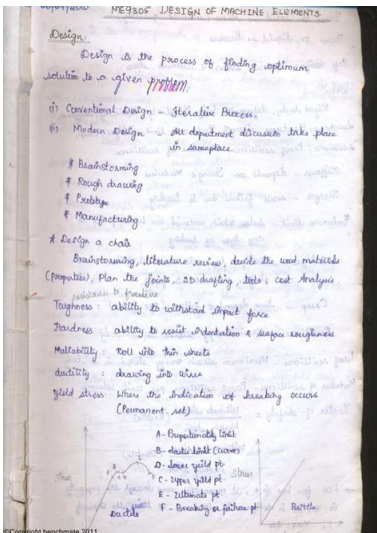 ME9305 DESIGN OF MACHINE ELEMENTS
Design:
Design is the process of finding optimum
solution to a given problem
(i) Conventional Design - Iterative Process
(ii) Modern Design All department discussion take place
in same place
# Brainstorming
# Rough drawing
# Prototype
# Manufacturing
* Design a chair
Brainstorming, literature review, decide the wood materials
(properties), Plan the joints, 2D drafting, tools, cost Analysis
resistance to fracture
Toughness: ability to withstand impact force
Hardness ability to resist indentation & surface roughness
Mallability: Roll into thin sheets
ductility : drawing into wires
Yield stress: Where the indication of breaking occurs
(Permanent set)
A - Proportionality limit
B - elastic limit (curve)
D - lower yield pt
C - Upper yield pt
E - Ultimate pt
F - Breaking or failure pt
Stress
Stress
Ductile
Brittle
©Copyright benchmate 2011